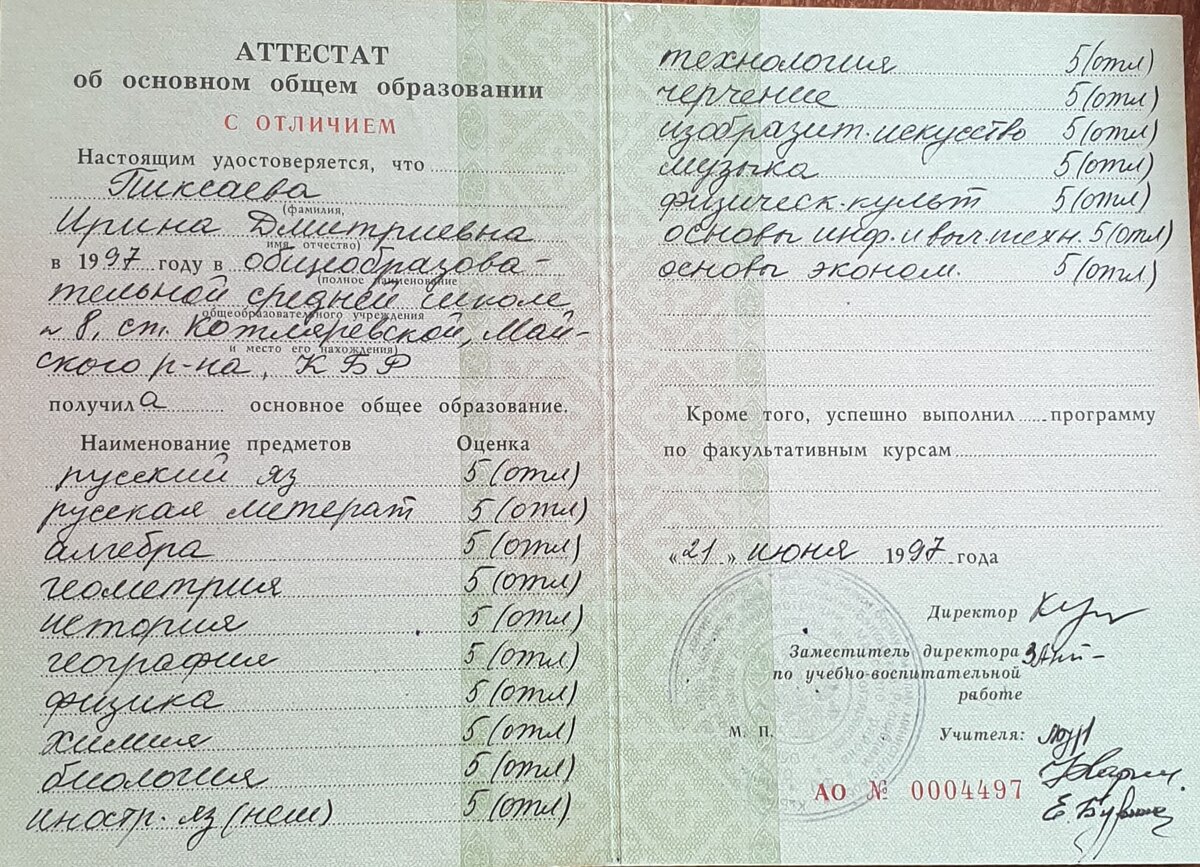 АТТЕСТАТ
об основном общем образовании
С ОТЛИЧИЕМ
Настоящим удостоверяется, что
Пиксаева
(фамилия,
Ирина Дмитриевна
имя, отчество)
в 1997 году в общеобразова-
(полное наименование
тельной средней школе
общеобразовательного учреждения
№ 8, ст. Котляревской, Май-
и место его нахождения)
ского р-на, КБР
получила основное общее образование.
Наименование предметов Оценка
русский яз 5 (отл)
русская литерат 5 (отл)
алгебра 5 (отл)
геометрия 5 (отл)
история 5 (отл)
география 5 (отл)
физика 5 (отл)
химия 5 (отл)
биология 5 (отл)
иностр. яз (нем) 5 (отл)
технология 5 (отл)
черчение 5 (отл)
изобразит. искусство 5 (отл)
музыка 5 (отл)
физическ. культ 5 (отл)
основы инф. и выч. техн. 5 (отл)
основы эконом. 5 (отл)
Кроме того, успешно выполнил программу
по факультативным курсам
«21» июня 1997 года
Директор
Заместитель директора
по учебно-воспитательной
работе
М. П.
Учителя:
Ао № 0004497